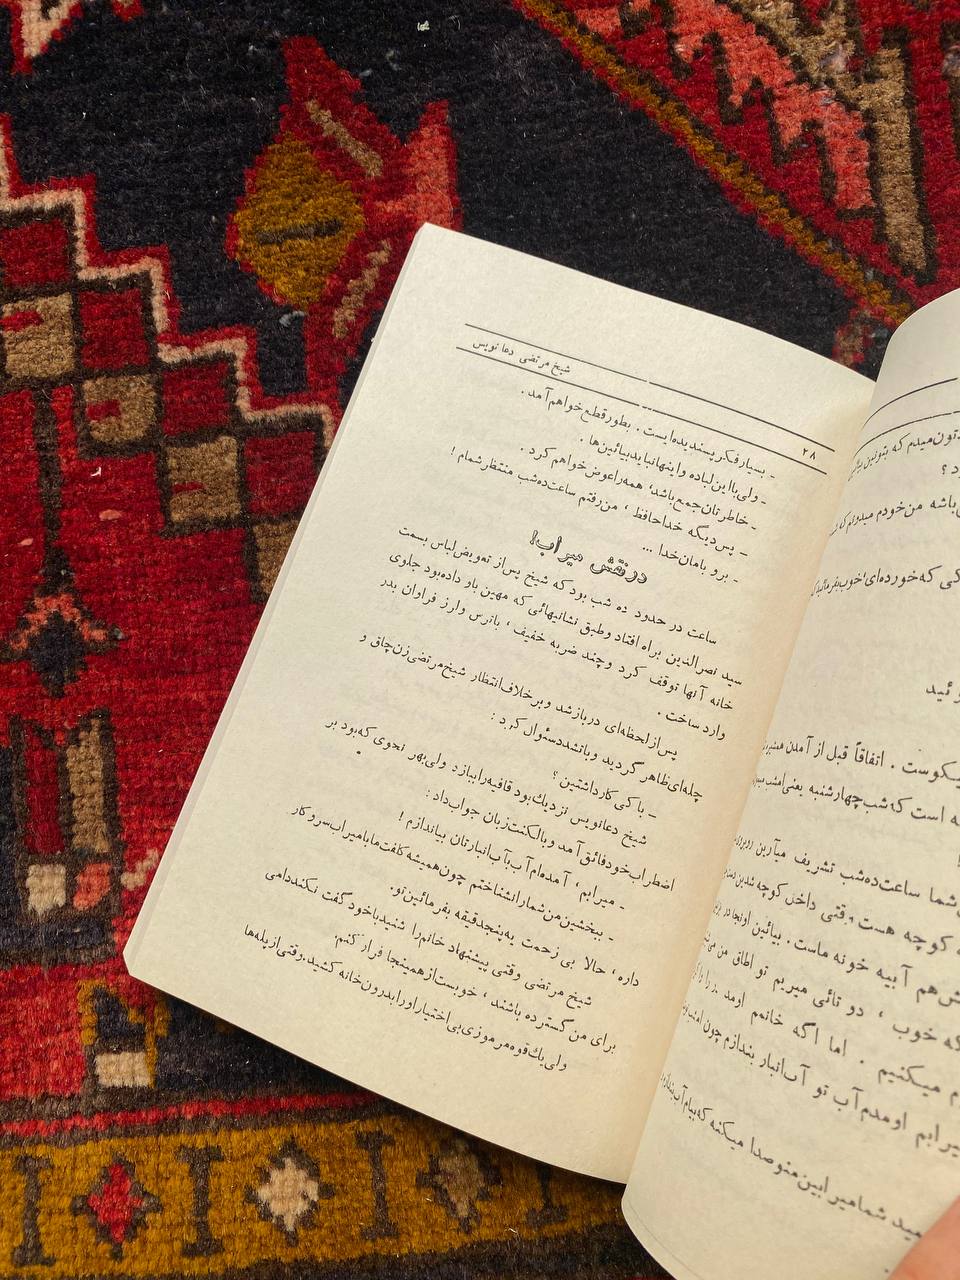 شیخ مرتضی دعا نویس
۲۸
- بسیار فکر پسندیده ایست . بطور قطع خواهم آمد .
- ولی با این لباده و اینها نباید بیائین ها .
- خاطرتان جمع باشد، همه را عوض خواهم کرد .
- پس دیگه خداحافظ ، من رفتم ساعت ده شب منتظر شمام !
- برو بامان خدا ...
در نقش میراب!
ساعت در حدود ده شب بود که شیخ پس از تعویض لباس بسمت
سید نصرالدین براه افتاد و طبق نشانیهائی که مهین باو داده بود جلوی
خانه آنها توقف کرد و چند ضربه خفیف ، با ترس و لرز فراوان بدر
وارد ساخت .
پس از لحظه ای در باز شد و برخلاف انتظار شیخ مرتضی زن چاق و
چله ای ظاهر گردید و با تشدد سئوال کرد :
- با کی کار داشتین ؟
شیخ دعانویس نزدیك بود قافیه را ببازد ولی بهر نحوی که بود بر
اضطراب خود فائق آمد و با لکنت زبان جواب داد :
- میرابم ، آمده ام آب بآب انبارتان بیاندازم !
- ببخشین من شما را نشناختم چون همیشه کلفت ما با میراب سر و کار
داره ، حالا بی زحمت یه پنجدقیقه بفرمائین تو.
شیخ مرتضی وقتی پیشنهاد خانم را شنید با خود گفت نکند دامی
برای من گسترده باشند ، خوبست از همینجا فرار کنم.
ولی یك قوه مرموزی بی اختیار او را بدرون خانه کشید. وقتی از پله ها
تون میدم که بتونین
د ؟
باشه من خودم میدونم که
کی که خورده ای، خوب بفرمائید
رئید
یکوست . اتفاقاً قبل از آمدن
ه است که شب چهارشنبه یعنی امشب
شما ساعت ده شب تشریف میآرین
کوچه هست وقتی داخل کوچه شدین
ش هم آبیه خونه ماست . بیائین اونجا در
که خوب ، دو تائی میریم تو اطاق من
م میکنیم . اما اگه خانم اومد
یرابم اومدم آب تو آب انبار بندازم چون امشب
یید شما میرابین منو صدا میکنه که بیام